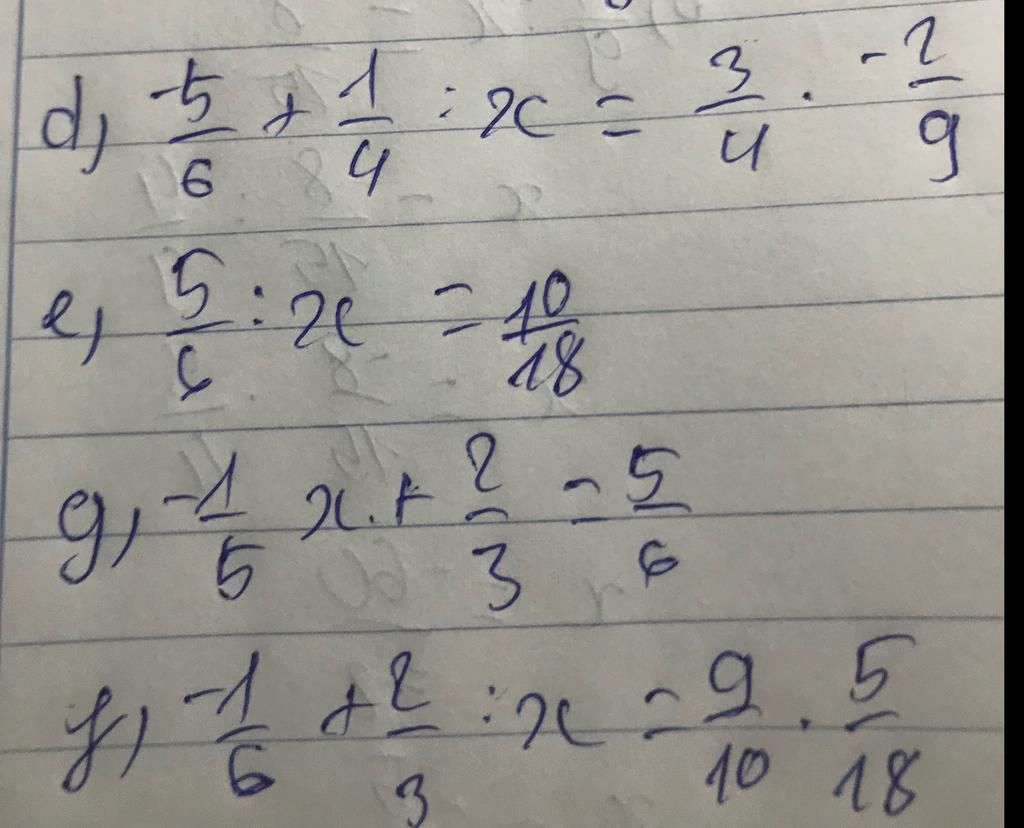 d, -5/6 + 1/4 : x = 3/4 . -2/9
e, 5/6 : x = 10/18
g, -1/5 x + 2/3 = 5/6
f, -1/6 + 2/3 : x = 9/10 . 5/18